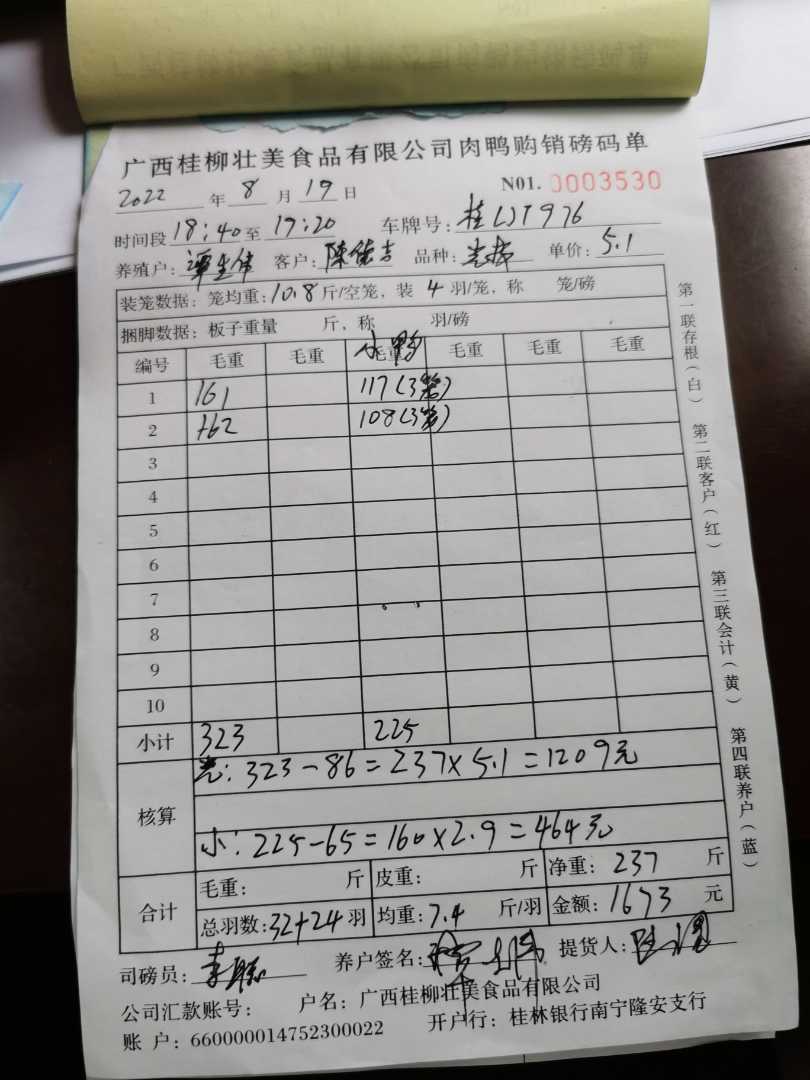 广西桂柳壮美食品有限公司肉鸭购销磅码单
2022 年 8 月 19 日 N01. 0003530
时间段 18:40 至 19:20 车牌号: 桂
养殖户: 客户: 陈 品种: 单价: 5.1
装笼数据: 笼均重: 10.8 斤/空笼, 装 4 羽/笼, 称 笼/磅
捆脚数据: 板子重量 斤, 称 羽/磅
编号 毛重 毛重 小鸭 毛重 毛重 毛重
1 161 117(3笼)
2 162 108(3笼)
3
4
5
6
7
8
9
10
小计 323 225
核算
323-86=237×5.1=1209元
小: 225-65=160×2.9=464元
合计
毛重: 斤 皮重: 斤 净重: 237 斤
总羽数: 32+24 羽 均重: 7.4 斤/羽 金额: 1673 元
司磅员: 养户签名: 提货人:
公司汇款账号: 户名: 广西桂柳壮美食品有限公司
账 户: 660000014752300022 开户行: 桂林银行南宁隆安支行
第一联存根(白) 第二联客户(红) 第三联会计(黄) 第四联养户(蓝)